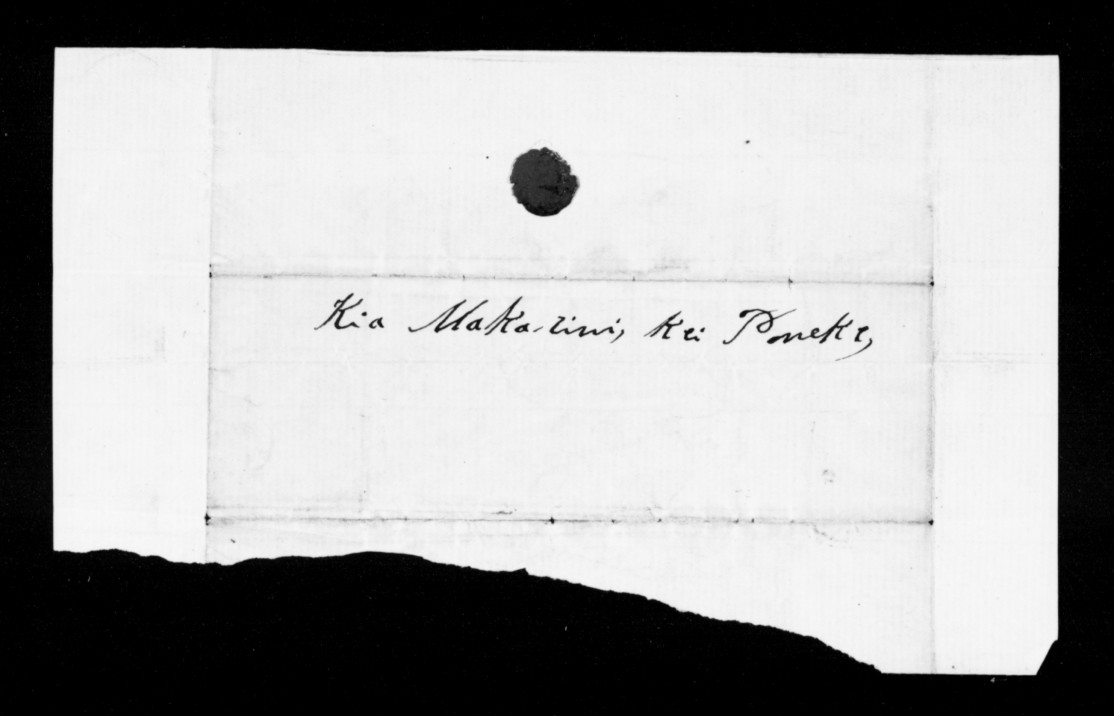 Kia Makarini, kei Poneke,